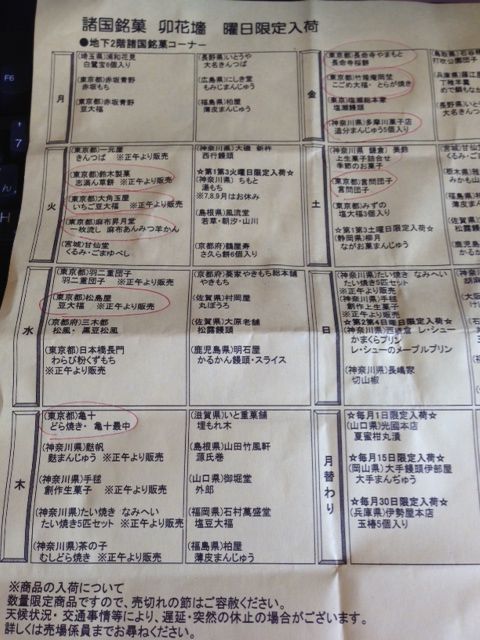 諸国銘菓 卯花墻 曜日限定入荷
●地下2階諸国銘菓コーナー
月
(埼玉県)浦和花見
白鷺宝6個入り
(東京都)赤坂青野
赤坂もち
(東京都)赤坂青野
豆大福
(長野県)いとうや
大名きんつば
(広島県)にしき堂
もみじまんじゅう
(福島県)柏屋
薄皮まんじゅう
火
(東京都)一元屋
きんつば ※正午より販売
(東京都)鈴木製菓
志満ん草餅 ※正午より販売
(東京都)大角玉屋
いちご豆大福 ※正午より販売
(東京都)麻布昇月堂
一枚流し 麻布あんみつ羊かん
(宮城)甘仙堂
くるみ・ごまゆべし
(神奈川県)大磯 新杵
西行饅頭
★第1第3火曜日限定入荷☆
(神奈川県)ちもと
湯もち
※7.8.9月はお休み
(島根県)風流堂
若草・朝汐・山川
(京都府)鶴屋寿
さ久ら餅6個入り
水
(東京都)羽二重団子
羽二重団子 ※正午より販売
(東京都)松島屋
豆大福 ※正午より販売
(京都府)三木都
松風・黒豆松風
(東京都)日本橋長門
わらび粉くずもち
※正午より販売
(京都府)葵家やきもち総本舗
やきもち
(佐賀県)村岡屋
丸ぼうろ
(佐賀県)大原老舗
松露饅頭
(鹿児島県)明石屋
かるかん饅頭・スライス
木
(東京都)亀十
どら焼き・亀十最中
(神奈川県)麩帆
麩まんじゅう ※正午より販売
(神奈川県)手毬
創作生菓子 ※正午より販売
(神奈川県)たい焼き なみへい
たい焼き5匹セット ※正午より販売
(神奈川県)茶の子
むしどら焼き ※正午より販売
(滋賀県)いと重菓舗
埋もれ木
(島根県)山田竹風軒
源氏巻
(山口県)御堀堂
外郎
(福岡県)石村萬盛堂
塩豆大福
(福島県)柏屋
薄皮まんじゅう
金
(東京都)長命寺やまもと
長命寺桜餅
(東京都)竹隆庵岡埜
こごめ大福・とらが焼き
(東京)塩瀬総本家
塩瀬饅頭
(神奈川県)多摩川菓子店
追分まんじゅう5個入り
土
(神奈川県 鎌倉)長鈴
上生菓子詰合せ
季節のお菓子
(東京都)言問団子
言問団子
(東京都)みずの
塩大福3個入り
★第1第3土曜日限定入荷☆
(静岡県)柳月
ながお菓まんじゅう
日
(神奈川県)たい焼き なみへい
たい焼き5匹セット
※正午より販売
(神奈川県)手毬
創作上生菓子
※正午より販売
★第2第4日曜日限定入荷☆
レ・シュー
かまくらプリン
レ・シューのメープルプリン
(神奈川県)長嶋家
切山椒
月替わり
★毎月1日限定入荷☆
(山口県)光國本店
夏蜜柑丸漬
★毎月15日限定入荷☆
(岡山県)大手饅頭伊部屋
大手まんぢゅう
★毎月30日限定入荷☆
(兵庫県)伊勢屋本店
玉椿5個入り
※商品の入荷について
数量限定商品ですので、売切れの節はご容赦ください。
天候状況・交通事情等により、遅延・突然の休止の場合がございます。
詳しくは売場係員までお尋ねください。